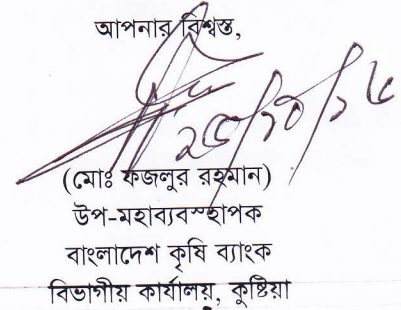 আপনার বিশ্বস্ত,
২৫/১০/১৬
(মোঃ ফজলুর রহমান)
উপ-মহাব্যবস্হাপক
বাংলাদেশ কৃষি ব্যাংক
বিভাগীয় কার্যালয়, কুষ্টিয়া